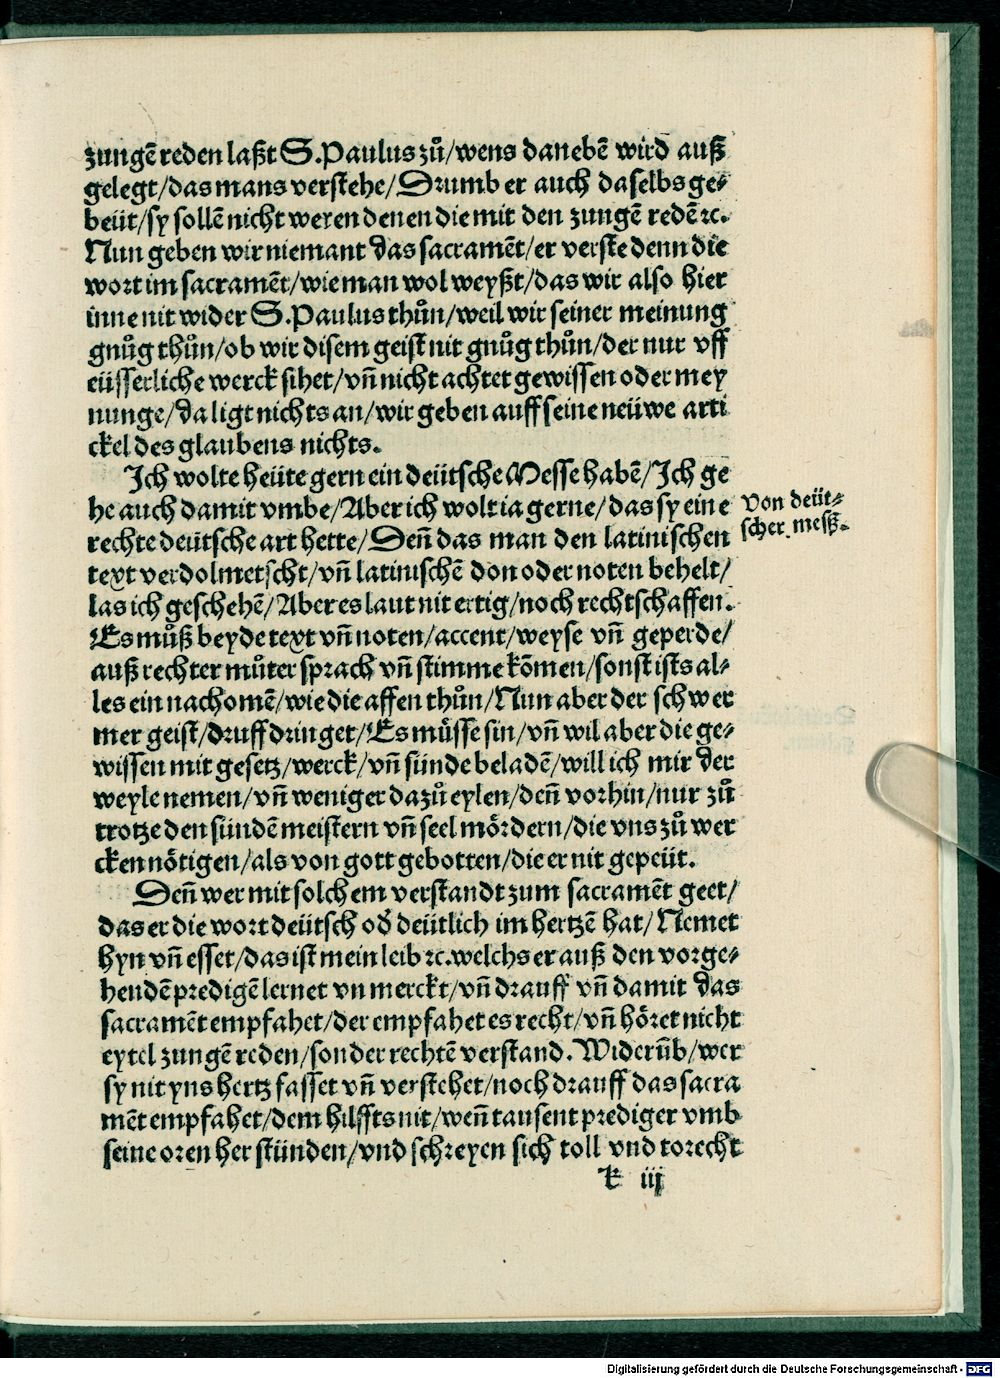 zungē reden laßt S. Paulus zů/wens danebē wird auß
gelegt/das mans verstehe/Drumb er auch daselbs ge⸗
beüt/sy sollē nicht weren denen die mit den zungē redē ꝛc.
Nun geben wir niemant das sacramēt/er verste denn die
wort im sacramēt/wie man wol weyßt/das wir also hier
inne nit wider S. Paulus thůn/weil wir seiner meinung
gnůg thůn/ob wir disem geist nit gnůg thůn/der nur vff
eüsserliche werck sihet/vñ nicht achtet gewissen oder mey
nunge/da ligt nichts an/wir geben auff seine neüwe arti
ckel des glaubens nichts.
Ich wolte heüte gern ein deütsche Messe habē/Ich ge
he auch damit vmbe/Aber ich wolt ia gerne/das sy eine
rechte deütsche art hette/Deñ das man den latinischen
text verdolmetscht/vñ latinischē don oder noten behelt/
las ich geschehē/Aber es laut nit ertig/noch rechtschaffen.
Es můß beyde text vñ noten/accent/weyse vñ geperde/
auß rechter můter sprach vñ stimme kōmen/sonst ists al⸗
les ein nachomē/wie die affen thůn/Nun aber der schwer
mer geist/druff dringet/Es müsse sin/vñ wil aber die ge⸗
wissen mit gesetz/werck/vñ sünde beladē/will ich mir der
weyle nemen/vñ weniger dazů eylen/deñ vorhin/nur zů
trotze den sündē meistern vñ seel mördern/die vns zů wer
cken nötigen/als von gott gebotten/die er nit gepeüt.
Deñ wer mit solchem verstandt zum sacramēt geet/
das er die wort deütsch oď deütlich im hertzē hat/Nemet
hyn vñ esset/das ist mein leib ꝛc. welchs er auß den vorge⸗
hendē predigē lernet vn merckt/vñ drauff vñ damit das
sacramēt empfahet/der empfahet es recht/vñ höret nicht
eytel zungē reden/sonder rechtē verstand. Widerūb/wer
sy nit yns hertz fasset vñ verstehet/noch drauff das sacra
mēt empfahet/dem hilffts nit/weñ tausent prediger vmb
seine oren her stünden/vnd schreyen sich toll vnd torecht
k iij
von deüt⸗
scher meß.
Digitalisierung gefördert durch die Deutsche Forschungsgemeinschaft - DFG